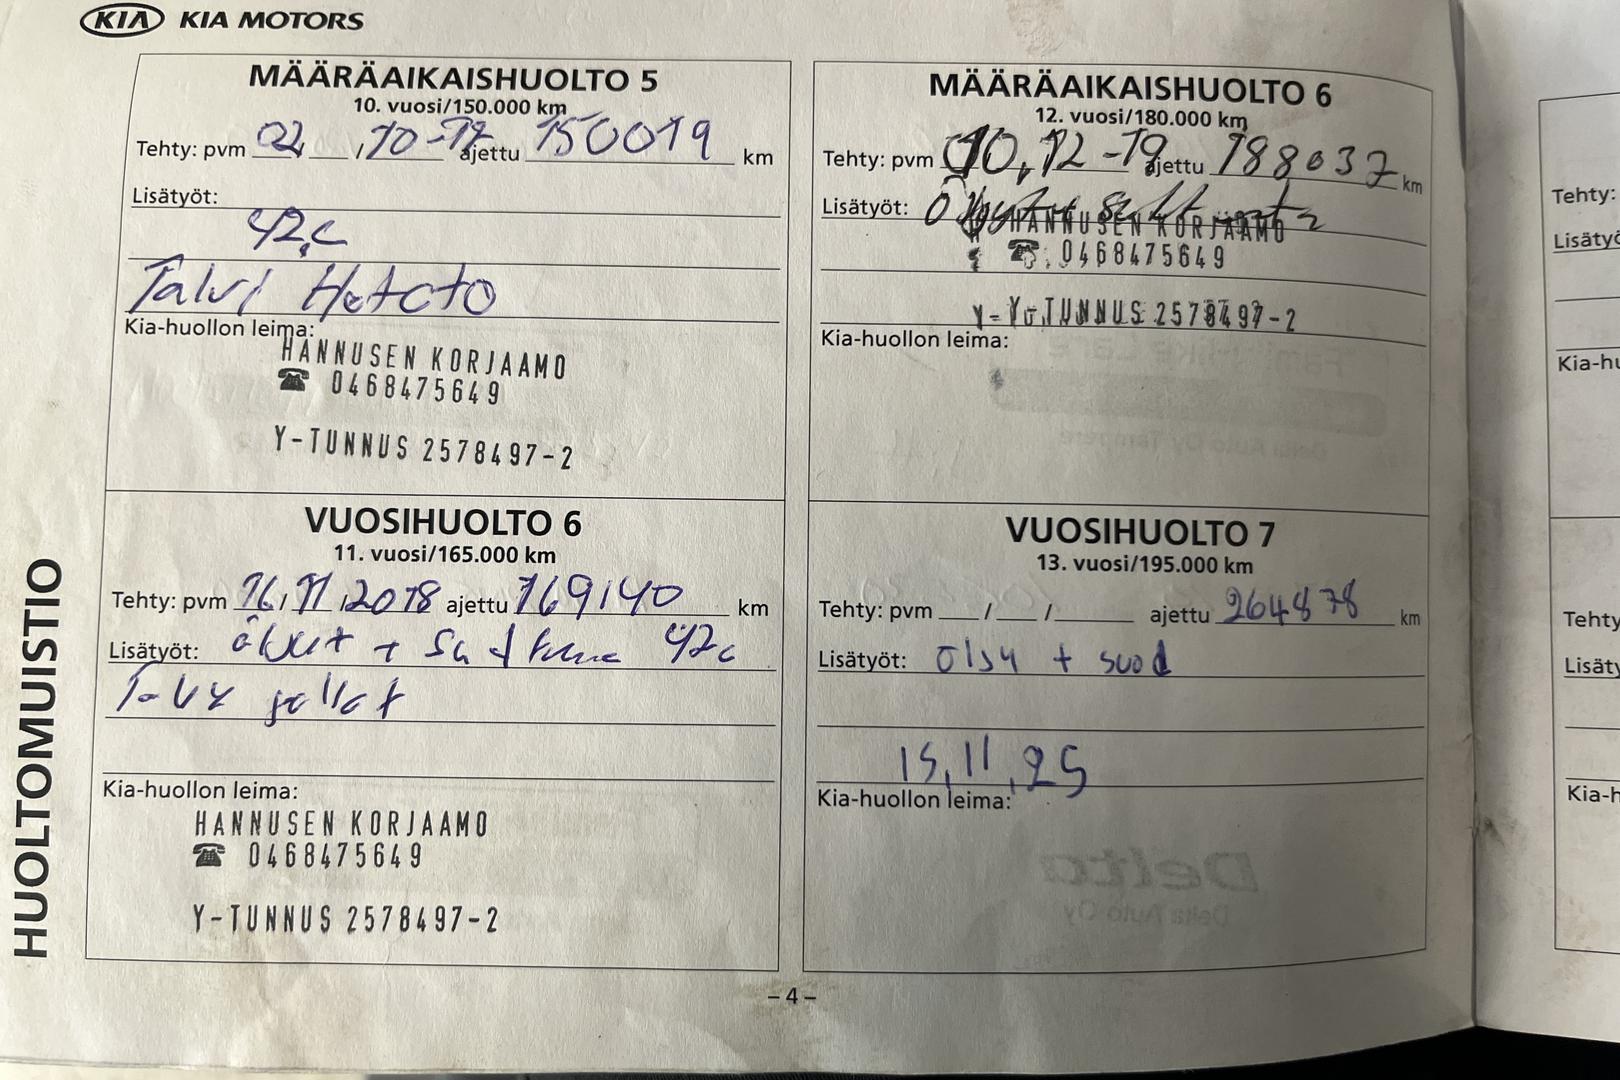 KIA KIA MOTORS
MÄÄRÄAIKAISHUOLTO 5
10. vuosi/150.000 km
Tehty: pvm 02, / 10 -17 ajettu 150019 km
Lisätyöt:
42c
Talvi
Kia-huollon leima:
HANNUSEN KORJAAMO
☎ 0468475649
Y-TUNNUS 2578497-2
VUOSIHUOLTO 6
11. vuosi/165.000 km
Tehty: pvm 16, / 11 / 2018 ajettu 169140 km
Lisätyöt: + 42c
Kia-huollon leima:
HANNUSEN KORJAAMO
☎ 0468475649
Y-TUNNUS 2578497-2
MÄÄRÄAIKAISHUOLTO 6
12. vuosi/180.000 km
Tehty: pvm 10, 12 -19 ajettu 188037 km
Lisätyöt:
HANNUSEN KORJAAMO
☎ 0468475649
Y-TUNNUS 2578497-2
Kia-huollon leima:
VUOSIHUOLTO 7
13. vuosi/195.000 km
Tehty: pvm / / ajettu 264878 km
Lisätyöt: ölsy + suod
15,11,25
Kia-huollon leima:
HUOLTOMUISTIO
– 4 –
Tehty:
Kia-hu
Tehty
Kia-h